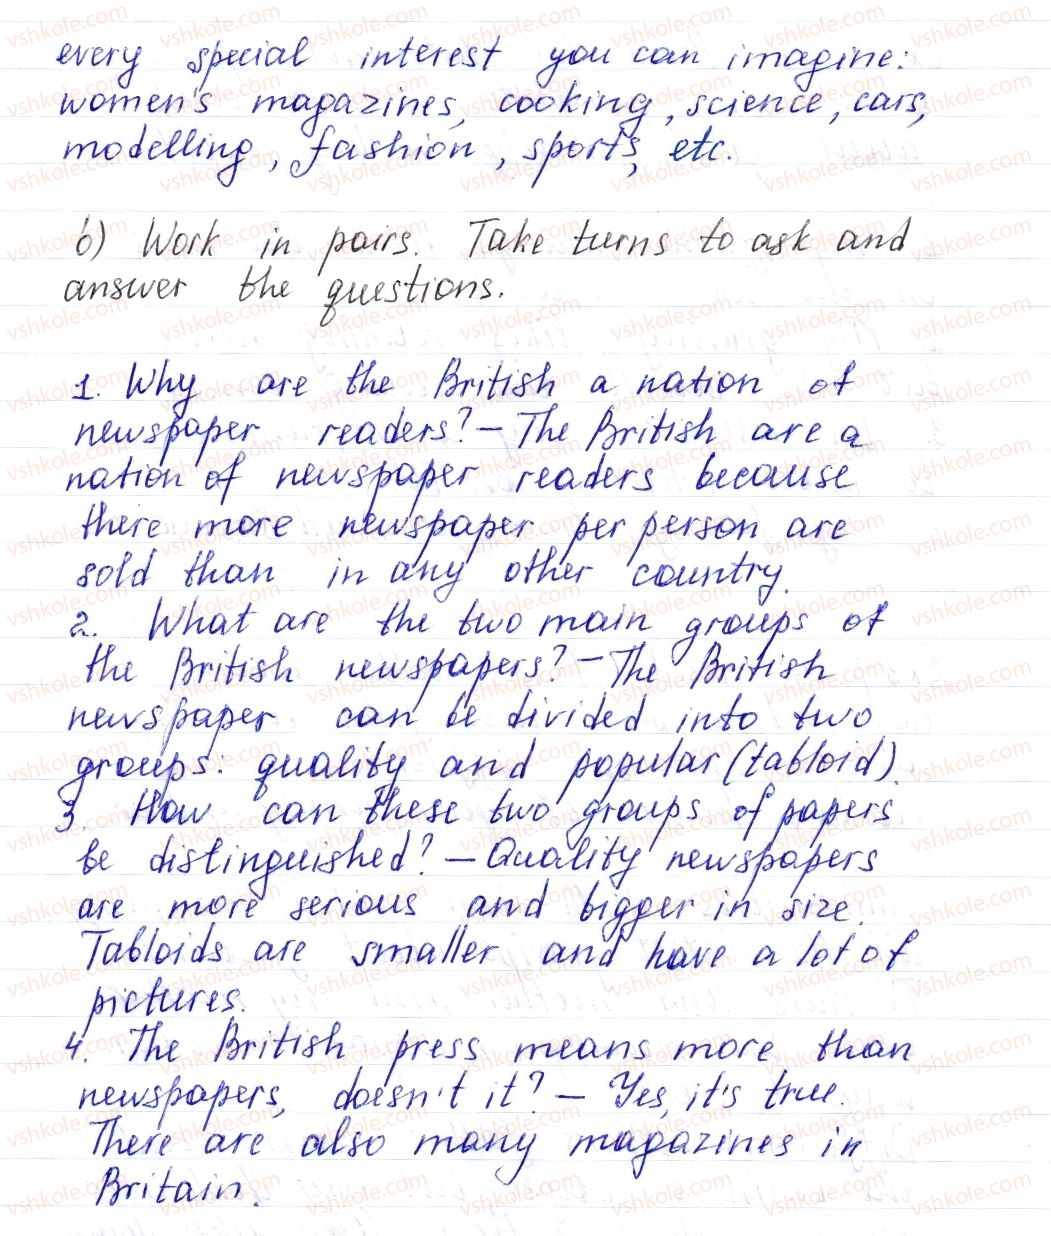 every special interest you can imagine:
women's magazines, cooking, science, cars,
modelling, fashion, sports, etc.
b) Work in pairs. Take turns to ask and
answer the questions.
1. Why are the British a nation of
newspaper readers? – The British are a
nation of newspaper readers because
there more newspaper per person are
sold than in any other country.
2. What are the two main groups of
the British newspapers? – The British
newspaper can be divided into two
groups: quality and popular (tabloid).
3. How can these two groups of papers
be distinguished? – Quality newspapers
are more serious and bigger in size.
Tabloids are smaller and have a lot of
pictures.
4. The British press means more than
newspapers, doesn't it? – Yes, it's true.
There are also many magazines in
Britain.
vshkole.com